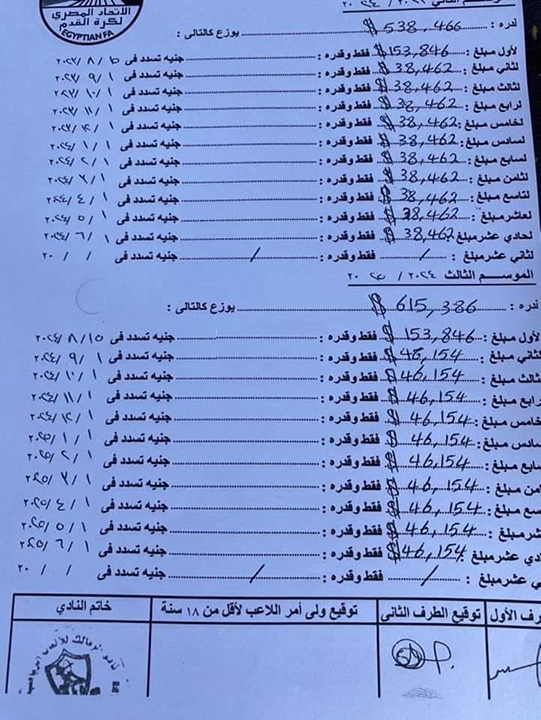 الاتحاد المصري
لكرة القدم
EGYPTIAN FA
قدره : $ 538,466 يوزع كالتالى :
لأول مبلغ $ 153,846 فقط وقدره : جنيه تسدد فى ١٥/ ٨ /٢٠٢٣
لثاني مبلغ : $ 38,462 فقط وقدره : جنيه تسدد فى ١/ ٩ /٢٠٢٣
لثالث مبلغ : $ 38,462 فقط وقدره : جنيه تسدد فى ١/ ١٠ /٢٠٢٣
لرابع مبلغ : $ 38,462 فقط وقدره : جنيه تسدد فى ١/ ١١ /٢٠٢٣
لخامس مبلغ : $ 38,462 فقط وقدره : جنيه تسدد فى ١/ ١٢ /٢٠٢٣
لسادس مبلغ : $ 38,462 فقط وقدره : جنيه تسدد فى ١/ ١ /٢٠٢٤
لسابع مبلغ : $ 38,462 فقط وقدره : جنيه تسدد فى ١/ ٢ /٢٠٢٤
لثامن مبلغ : $ 38,462 فقط وقدره : جنيه تسدد فى ١/ ٣ /٢٠٢٤
لتاسع مبلغ : $ 38,462 فقط وقدره : جنيه تسدد فى ١/ ٤ /٢٠٢٤
لعاشر مبلغ : $ 38,462 فقط وقدره : جنيه تسدد فى ١/ ٥ /٢٠٢٤
لحادي عشر مبلغ $ 38,462 فقط وقدره : جنيه تسدد فى ١/ ٦ /٢٠٢٤
لثاني عشر مبلغ : / فقط وقدره : / جنيه تسدد فى / / ٢٠
الموسم الثالث ٢٠٢٤ / ٢٠٢٥
قدره : $ 615,386 يوزع كالتالى :
لأول مبلغ : $ 153,846 فقط وقدره : جنيه تسدد فى ١٥/ ٨ /٢٠٢٤
لثاني مبلغ : $ 46,154 فقط وقدره : جنيه تسدد فى ١/ ٩ /٢٠٢٤
لثالث مبلغ : $ 46,154 فقط وقدره : جنيه تسدد فى ١/ ١٠ /٢٠٢٤
رابع مبلغ : $ 46,154 فقط وقدره : جنيه تسدد فى ١/ ١١ /٢٠٢٤
خامس مبلغ : $ 46,154 فقط وقدره : جنيه تسدد فى ١/ ١٢ /٢٠٢٤
سادس مبلغ : $ 46,154 فقط وقدره : جنيه تسدد فى ١/ ١ /٢٠٢٥
سابع مبلغ : $ 46,154 فقط وقدره : جنيه تسدد فى ١/ ٢ /٢٠٢٥
امن مبلغ : $ 46,154 فقط وقدره : جنيه تسدد فى ١/ ٣ /٢٠٢٥
سع مبلغ : $ 46,154 فقط وقدره : جنيه تسدد فى ١/ ٤ /٢٠٢٥
شر مبلغ : $ 46,154 فقط وقدره : جنيه تسدد فى ١/ ٥ /٢٠٢٥
دي عشر مبلغ : $ 46,154 فقط وقدره : جنيه تسدد فى ١/ ٦ /٢٠٢٥
ي عشر مبلغ : / فقط وقدره : / جنيه تسدد فى / / ٢٠
رف الأول توقيع الطرف الثانى توقيع ولى أمر اللاعب لأقل من ١٨ سنة خاتم النادي
نادي الزمالك للألعاب الرياضية